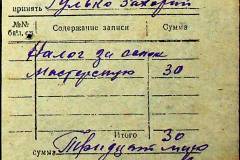 принять Гулько Захарий
№№ Содержание записи Сумма
Налог за
Мастерскую 30
Итого 30
сумма Тридцать